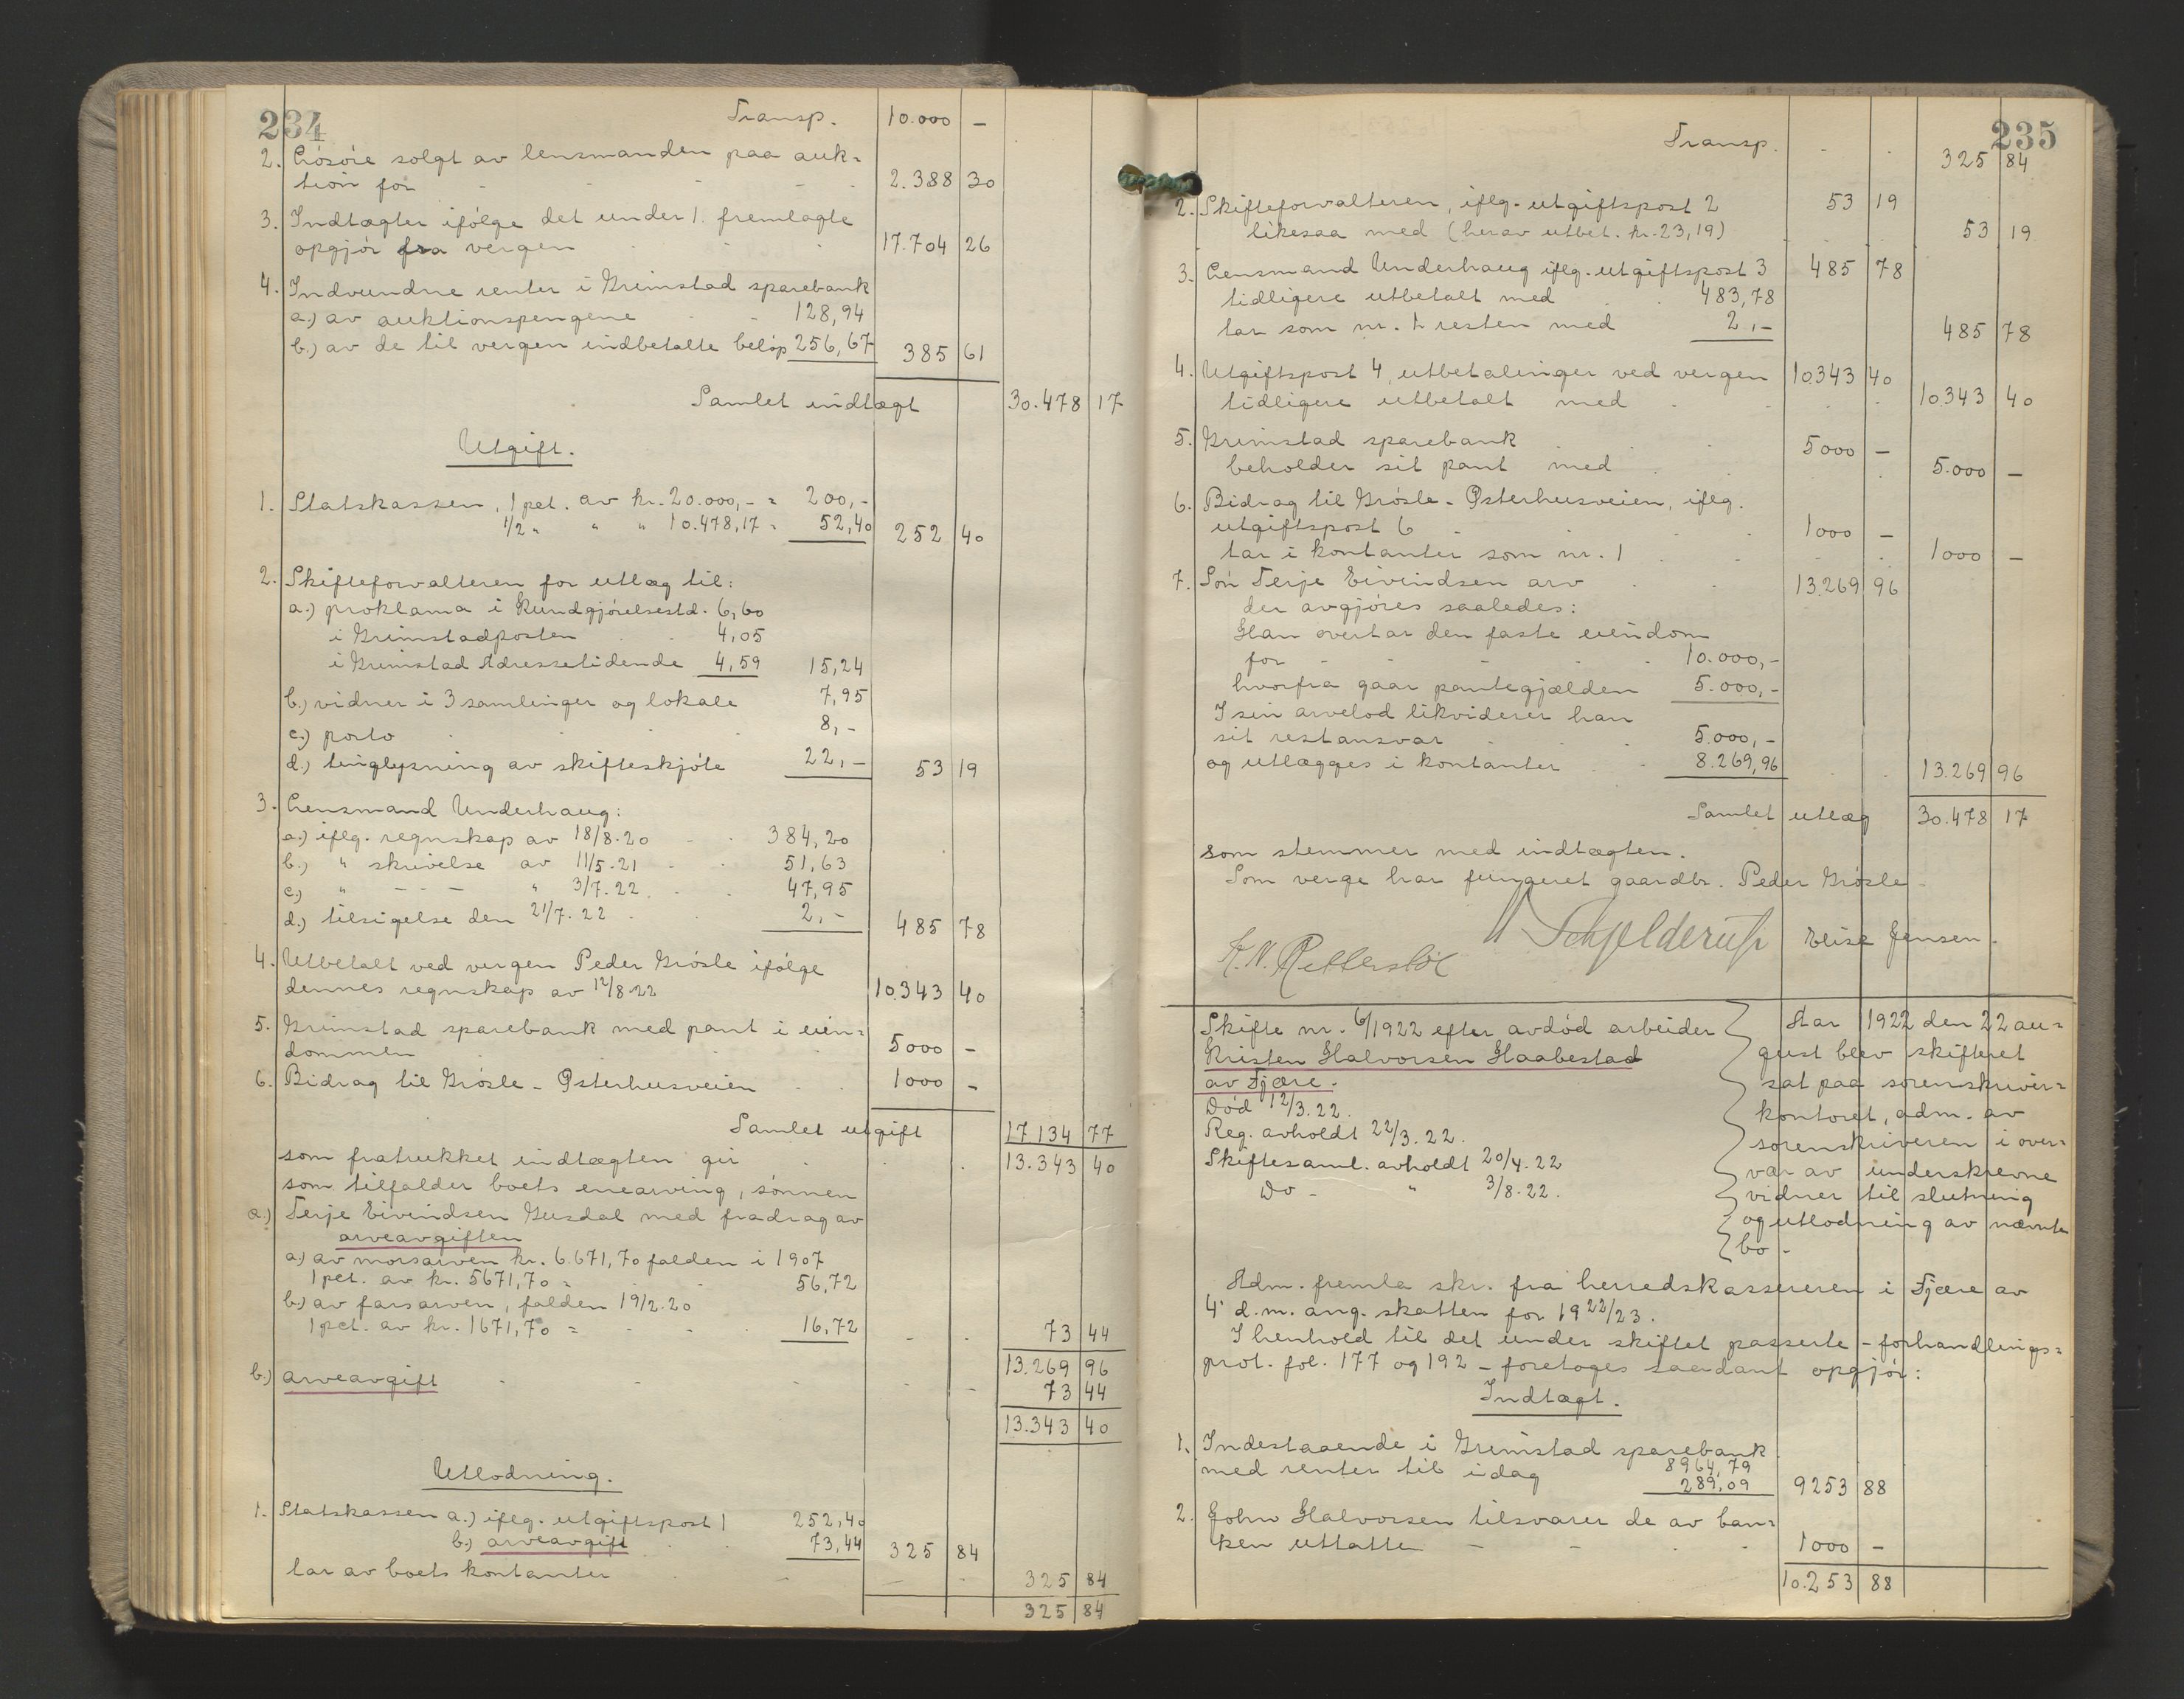 234
Transp. 10.000 –
2. Løsøre solgt av lensmanden paa auk=
tion for - - - - 2.388 30
3. Indtægter ifølge det under 1. fremlagte
opgjør fra vergen 17.704 26
4. Indvundne renter i Grimstad sparebank
a.) av auktionspengene - - 128,94
b.) av de til vergen indbetalte beløp 256,67 385 61
Samlet indtægt 30.478 17
Utgift.
1. Statskassen, 1 pct. av kr. 20.000,- = 200,-
1/2 " " " 10.478,17 = 52,40 252 40
2. Skifteforvalteren for utlæg til:
a.) proklama i Kundgjørelsestd. 6,60
i Grimstadposten 4,05
i Grimstad Adressetidende 4,59 15,24
b.) vidner i 3 samlinger og lokale 7,95
c.) porto 8,-
d.) tinglysning av skifteskjøte 22,- 53 19
3. Lensmand Underhaug:
a.) iflg. regnskap av 18/8.20 384,20
b.) " skrivelse av 11/5.21 51,63
c.) " - - - " 3/7.22 47,95
d.) tilsigelse den 21/7.22 2,- 485 78
4. Utbetalt ved vergen Peder Grøsle ifølge
dennes regnskap av 12/8.22 10.343 40
5. Grimstad sparebank med pant i eien=
dommen 5000 –
6. Bidrag til Grøsle - Østerhusveien 1000 –
Samlet utgift 17.134 77
som fratrukket indtægten gir 13.343 40
som tilfalder boets enearving, sønnen
a.) Terje Eivindsen Gusdal med fradrag av
arveavgiften
a.) av morsarven kr. 6.671,70 falden i 1907
1 pct. av kr. 5671,70 = 56,72
b.) av farsarven, falden 19/2.20
1 pct. av kr. 1671,70 = 16,72 73 44
13.269 96
b.) arveavgift 73 44
13.343 40
Utlodning.
1. Statskassen a.) iflg. utgiftspost 1 252,40
b.) arveavgift 73,44 325 84
tar av boets kontanter 325 84
325 84
235
Transp. 325 84
2. Skifteforvalteren, iflg. utgiftspost 2 53 19
likesaa med (herav utbet. kr. 23,19) 53 19
3. Lensmand Underhaug iflg. utgiftspost 3 485 78
tidligere utbetalt med 483,78
tar som nr. 1 resten med 2,- 485 78
4. Utgiftspost 4, utbetalinger ved vergen 10.343 40
tidligere utbetalt med 10.343 40
5. Grimstad sparebank 5000 –
beholder sit pant med 5.000 –
6. Bidrag til Grøsle - Østerhusveien, iflg.
utgiftspost 6 1000 –
tar i kontanter som nr. 1 1000 –
7. Søn Terje Eivindsen arv 13.269 96
der avgjøres saaledes:
Han overtar den faste eiendom
for - - - - 10.000,-
hvorfra gaar pantegjælden 5.000,-
I sin arvelod likviderer han
sit restansvar 5.000,-
og utlægges i kontanter 8.269,96 13.269 96
Samlet utlæg 30.478 17
som stemmer med indtægten.
Som verge har fungeret gaardbr. Peder Grøsle.
Schjelderup Elise Jensen.
K. N. Retterstøl
Skifte nr. 6/1922 efter avdød arbeider
Kristen Halvorsen Haabestad
av Fjære.
Død 12/3.22.
Reg. avholdt 22/3.22.
Skiftesaml. avholdt 20/4.22
Do - " 3/8.22.
Aar 1922 den 22 au=
gust blev skifteret
sat paa sorenskriver=
kontoret, adm. av
sorenskriveren i over=
vær av underskrevne
vidner til slutning
og utlodning av nævnte
bo -
Adm. fremla skr. fra herredskassereren i Fjære av
4' d.m. ang. skatten for 1922/23.
I henhold til det under skiftet passerte - forhandlings=
prot. fol. 177 og 192 - foretoges saadant opgjør:
Indtægt.
1. Indestaaende i Grimstad sparebank 8964,79
med renter til idag 289,09 9253 88
2. John Halvorsen tilsvarer de av ban=
ken uttatte - - 1000 –
10.253 88